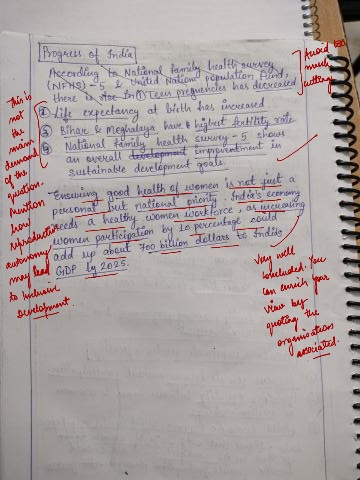 Progress of India
According to National family health survey
(NFHS)-5 & United Nations population Fund,
there is in ① Teen pregnencies has decreased
② Life expectancy at birth has increased
③ Bihar & Meghalaya have highest fertility rate
④ National family health survey - 5 shows
an overall development improvement in
sustainable development goals.
Ensuring good health of women is not just a
personal but national priority. India's economy
needs a healthy women workforce, as increasing
women participation by 10 percentage could
add up about 700 billion dollars to India's
GDP by 2025.
Avoid too
much
cutting
This is
not
the
main
demand
of the
question.
Mention
how
reproductive
autonomy
may lead
to Inclusive
development.
Very well
concluded. You
can enrich your
view by
quoting the
organisations
associated.